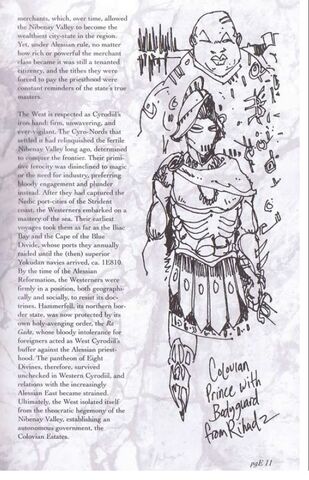 merchants, which, over time, allowed
the Nibenay Valley to become the
wealthiest city-state in the region.
Yet, under Alessian rule, no matter
how rich or powerful the merchant
class became it was still a tenanted
citizenry, and the tithes they were
forced to pay the priesthood were
constant reminders of the state's true
masters.
The West is respected as Cyrodiil's
iron hand: firm, unwavering, and
ever-vigilant. The Cyro-Nords that
settled it had relinquished the fertile
Nibenay Valley long ago, determined
to conquer the frontier. Their primi-
tive ferocity was disinclined to magic
or the need for industry, preferring
bloody engagement and plunder
instead. After they had captured the
Nedic port-cities of the Strident
coast, the Westerners embarked on a
mastery of the sea. Their earliest
voyages took them as far as the Iliac
Bay and the Cape of the Blue
Divide, whose ports they annually
raided until the (then) superior
Yokudan navies arrived, ca. 1E810.
By the time of the Alessian
Reformation, the Westerners were
firmly in a position, both geographi-
cally and socially, to resist its doc-
trines. Hammerfell, its northern bor-
der state, was now protected by its
own holy-avenging order, the Ra
Gada, whose bloody intolerance for
foreigners acted as West Cyrodiil's
buffer against the Alessian priest-
hood. The pantheon of Eight
Divines, therefore, survived
unchecked in Western Cyrodiil, and
relations with the increasingly
Alessian East became strained.
Ultimately, the West isolated itself
from the theocratic hegemony of the
Nibenay Valley, establishing an
autonomous government, the
Colovian Estates.
Colovian
Prince with
Bodyguard
from Rihad
pgE 11